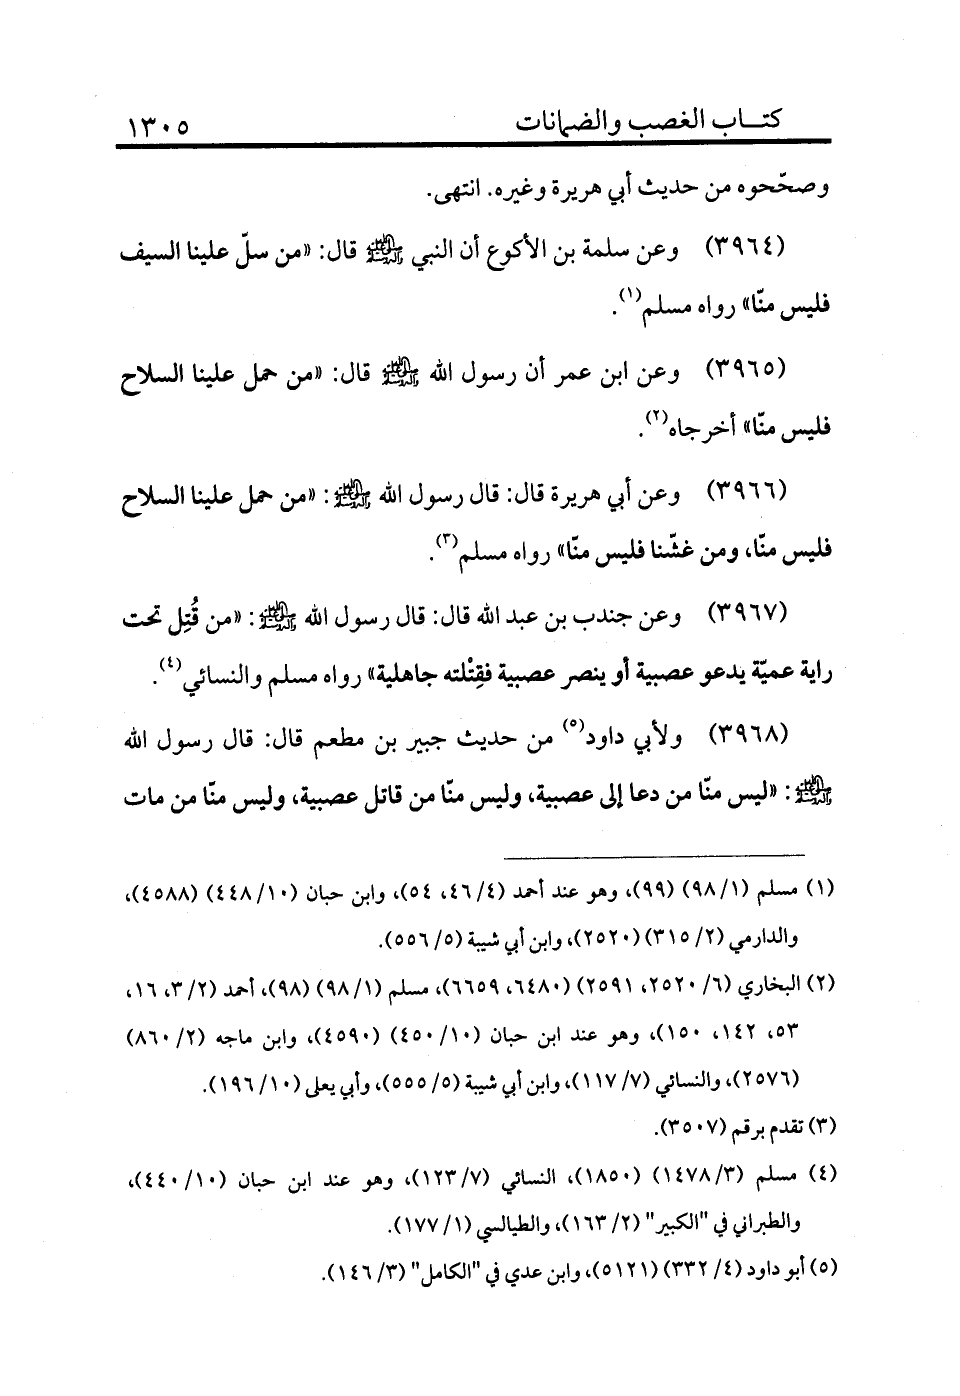 كتاب الغصب والضمانات ١٣٠٥
وصحّحوه من حديث أبي هريرة وغيره. انتهى.
(٣٩٦٤) وعن سلمة بن الأكوع أن النبي ﷺ قال: «من سلّ علينا السيف
فليس منّا» رواه مسلم(١).
(٣٩٦٥) وعن ابن عمر أن رسول الله ﷺ قال: «من حمل علينا السلاح
فليس منّا» أخرجاه(٢).
(٣٩٦٦) وعن أبي هريرة قال: قال رسول الله ﷺ: «من حمل علينا السلاح
فليس منّا، ومن غشّنا فليس منّا» رواه مسلم(٣).
(٣٩٦٧) وعن جندب بن عبد الله قال: قال رسول الله ﷺ: «من قُتِل تحت
راية عميّة يدعو عصبية أو ينصر عصبية فقِتْلته جاهلية» رواه مسلم والنسائي(٤).
(٣٩٦٨) ولأبي داود(٥) من حديث جبير بن مطعم قال: قال رسول الله
ﷺ: «ليس منّا من دعا إلى عصبية، وليس منّا من قاتل عصبية، وليس منّا من مات
(١) مسلم (١/ ٩٨) (٩٩)، وهو عند أحمد (٤/ ٤٦، ٥٤)، وابن حبان (١٠/ ٤٤٨) (٤٥٨٨)،
والدارمي (٢/ ٣١٥) (٢٥٢٠)، وابن أبي شيبة (٥/ ٥٥٦).
(٢) البخاري (٦/ ٢٥٢٠، ٢٥٩١) (٦٤٨٠، ٦٦٥٩)، مسلم (١/ ٩٨) (٩٨)، أحمد (٢/ ٣، ١٦،
٥٣، ١٤٢، ١٥٠)، وهو عند ابن حبان (١٠/ ٤٥٠) (٤٥٩٠)، وابن ماجه (٢/ ٨٦٠)
(٢٥٧٦)، والنسائي (٧/ ١١٧)، وابن أبي شيبة (٥/ ٥٥٥)، وأبي يعلى (١٠/ ١٩٦).
(٣) تقدم برقم (٣٥٠٧).
(٤) مسلم (٣/ ١٤٧٨) (١٨٥٠)، النسائي (٧/ ١٢٣)، وهو عند ابن حبان (١٠/ ٤٤٠)،
والطبراني في "الكبير" (٢/ ١٦٣)، والطيالسي (١/ ١٧٧).
(٥) أبو داود (٤/ ٣٣٢) (٥١٢١)، وابن عدي في "الكامل" (٣/ ١٤٦).